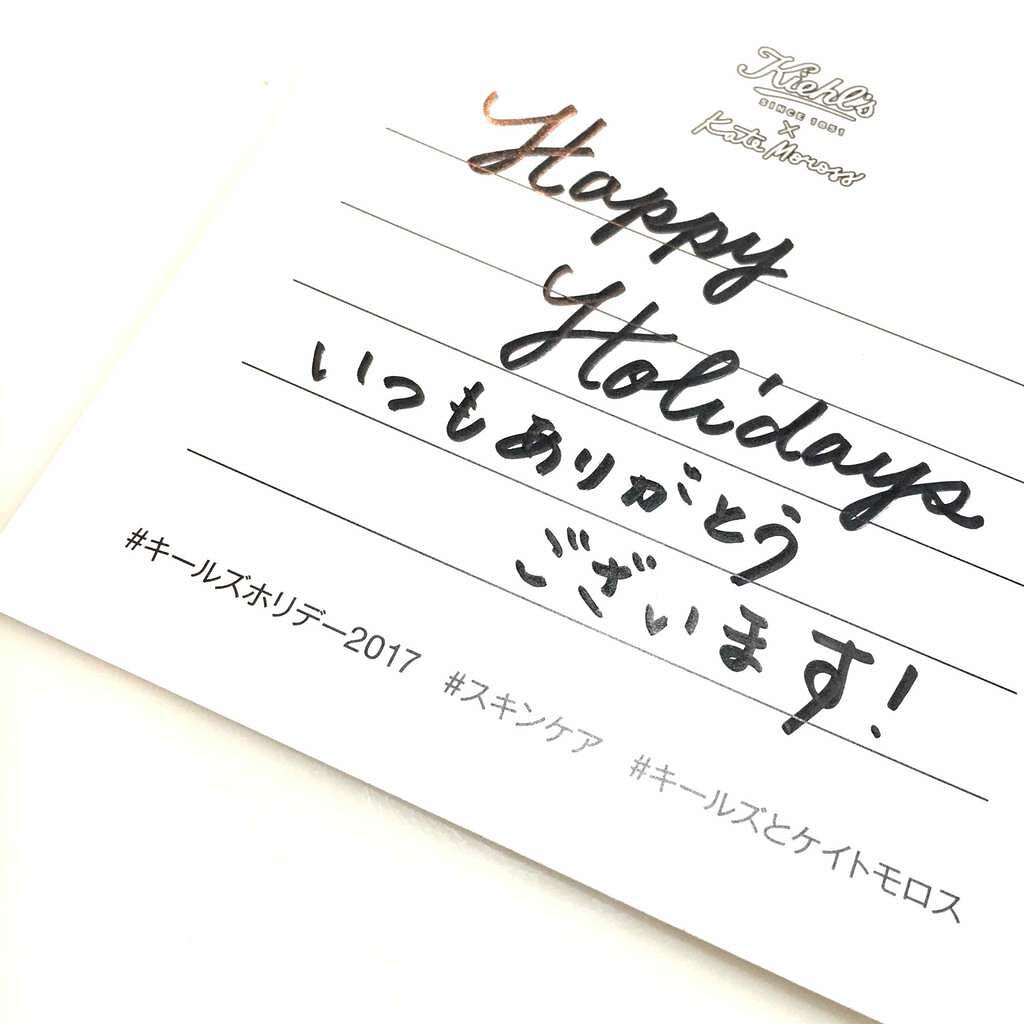 Kiehl's
SINCE 1851
×
Kate Moross
Happy
Holidays
いつもありがとう
ございます!
#キールズホリデー2017 #スキンケア #キールズとケイトモロス